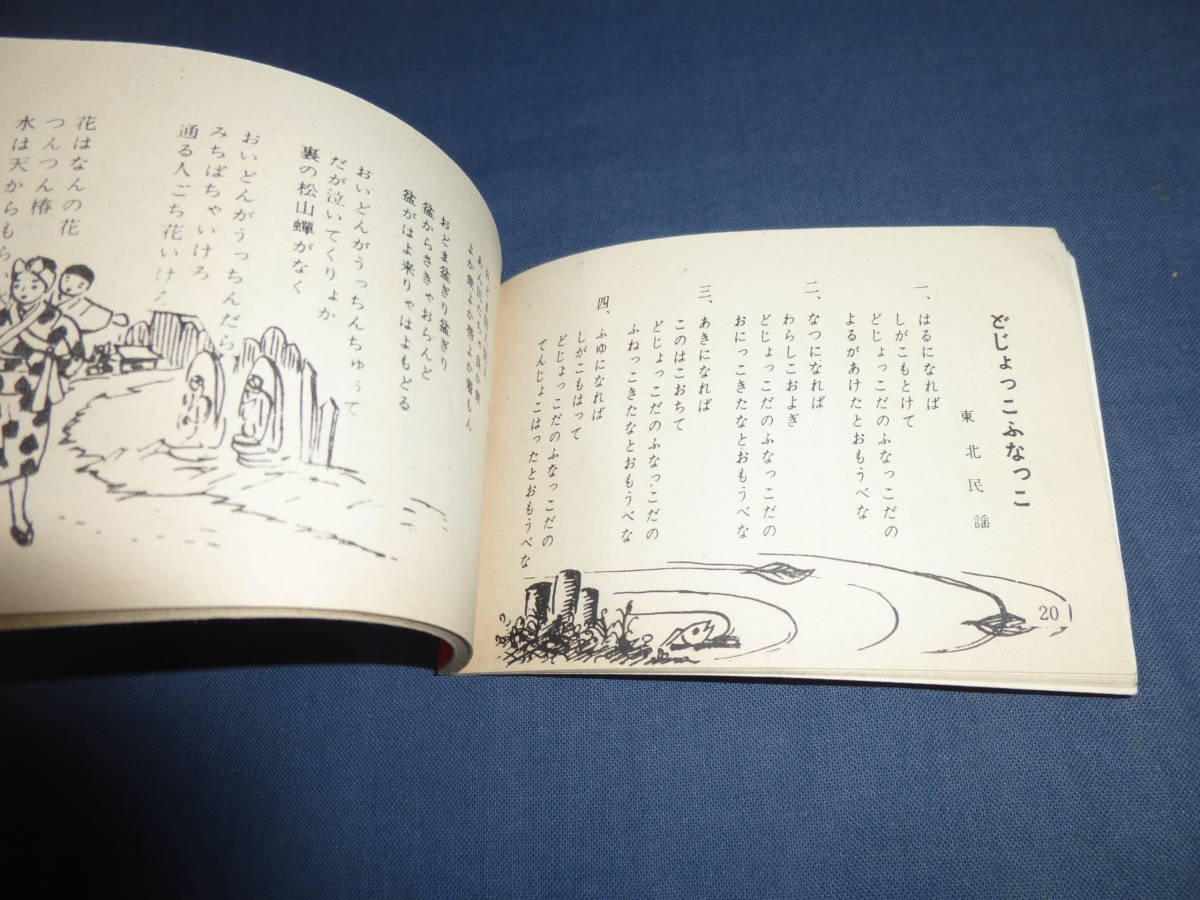 どじょっこふなっこ
東北民謡
一、はるになれば
しがこもとけて
どじょっこだのふなっこだの
よるがあけたとおもうべな
二、なつになれば
わらしこおよぎ
どじょっこだのふなっこだの
おにっこきたなとおもうべな
三、あきになれば
このはこおちて
どじょっこだのふなっこだの
ふねっこきたなとおもうべな
四、ふゆになれば
しがこもはって
どじょっこだのふなっこだの
てんじょこはったとおもうべな
20
おどま盆ぎり盆ぎり
盆からさきゃおらんど
盆がはよ来りゃはよもどる
おいどんがうっちんちゅうて
だが泣いてくりょか
裏の松山蟬がなく
おいどんがうっちんだら
みちばちゃいけろ
通る人ごち花いけ
花はなんの花
つんつん椿
水は天からもら